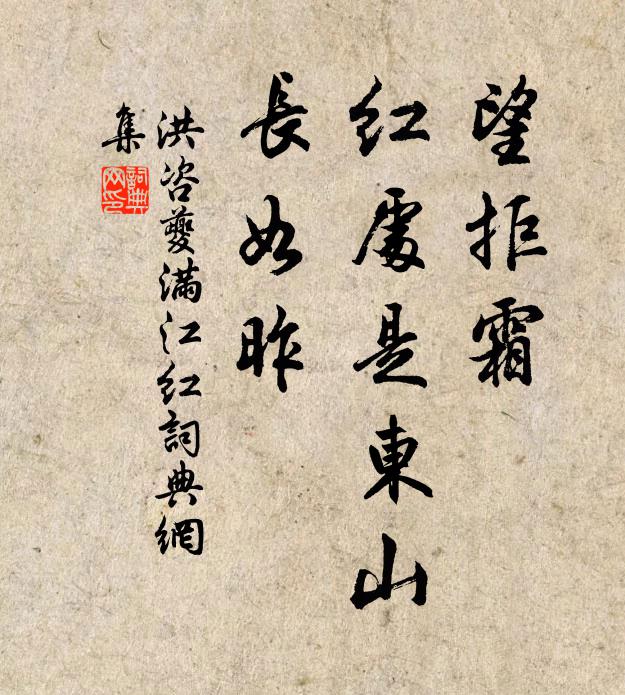 望拒霜
紅處是東山
長如昨
洪咨夔滿江紅詞典網
集
詞典
网印